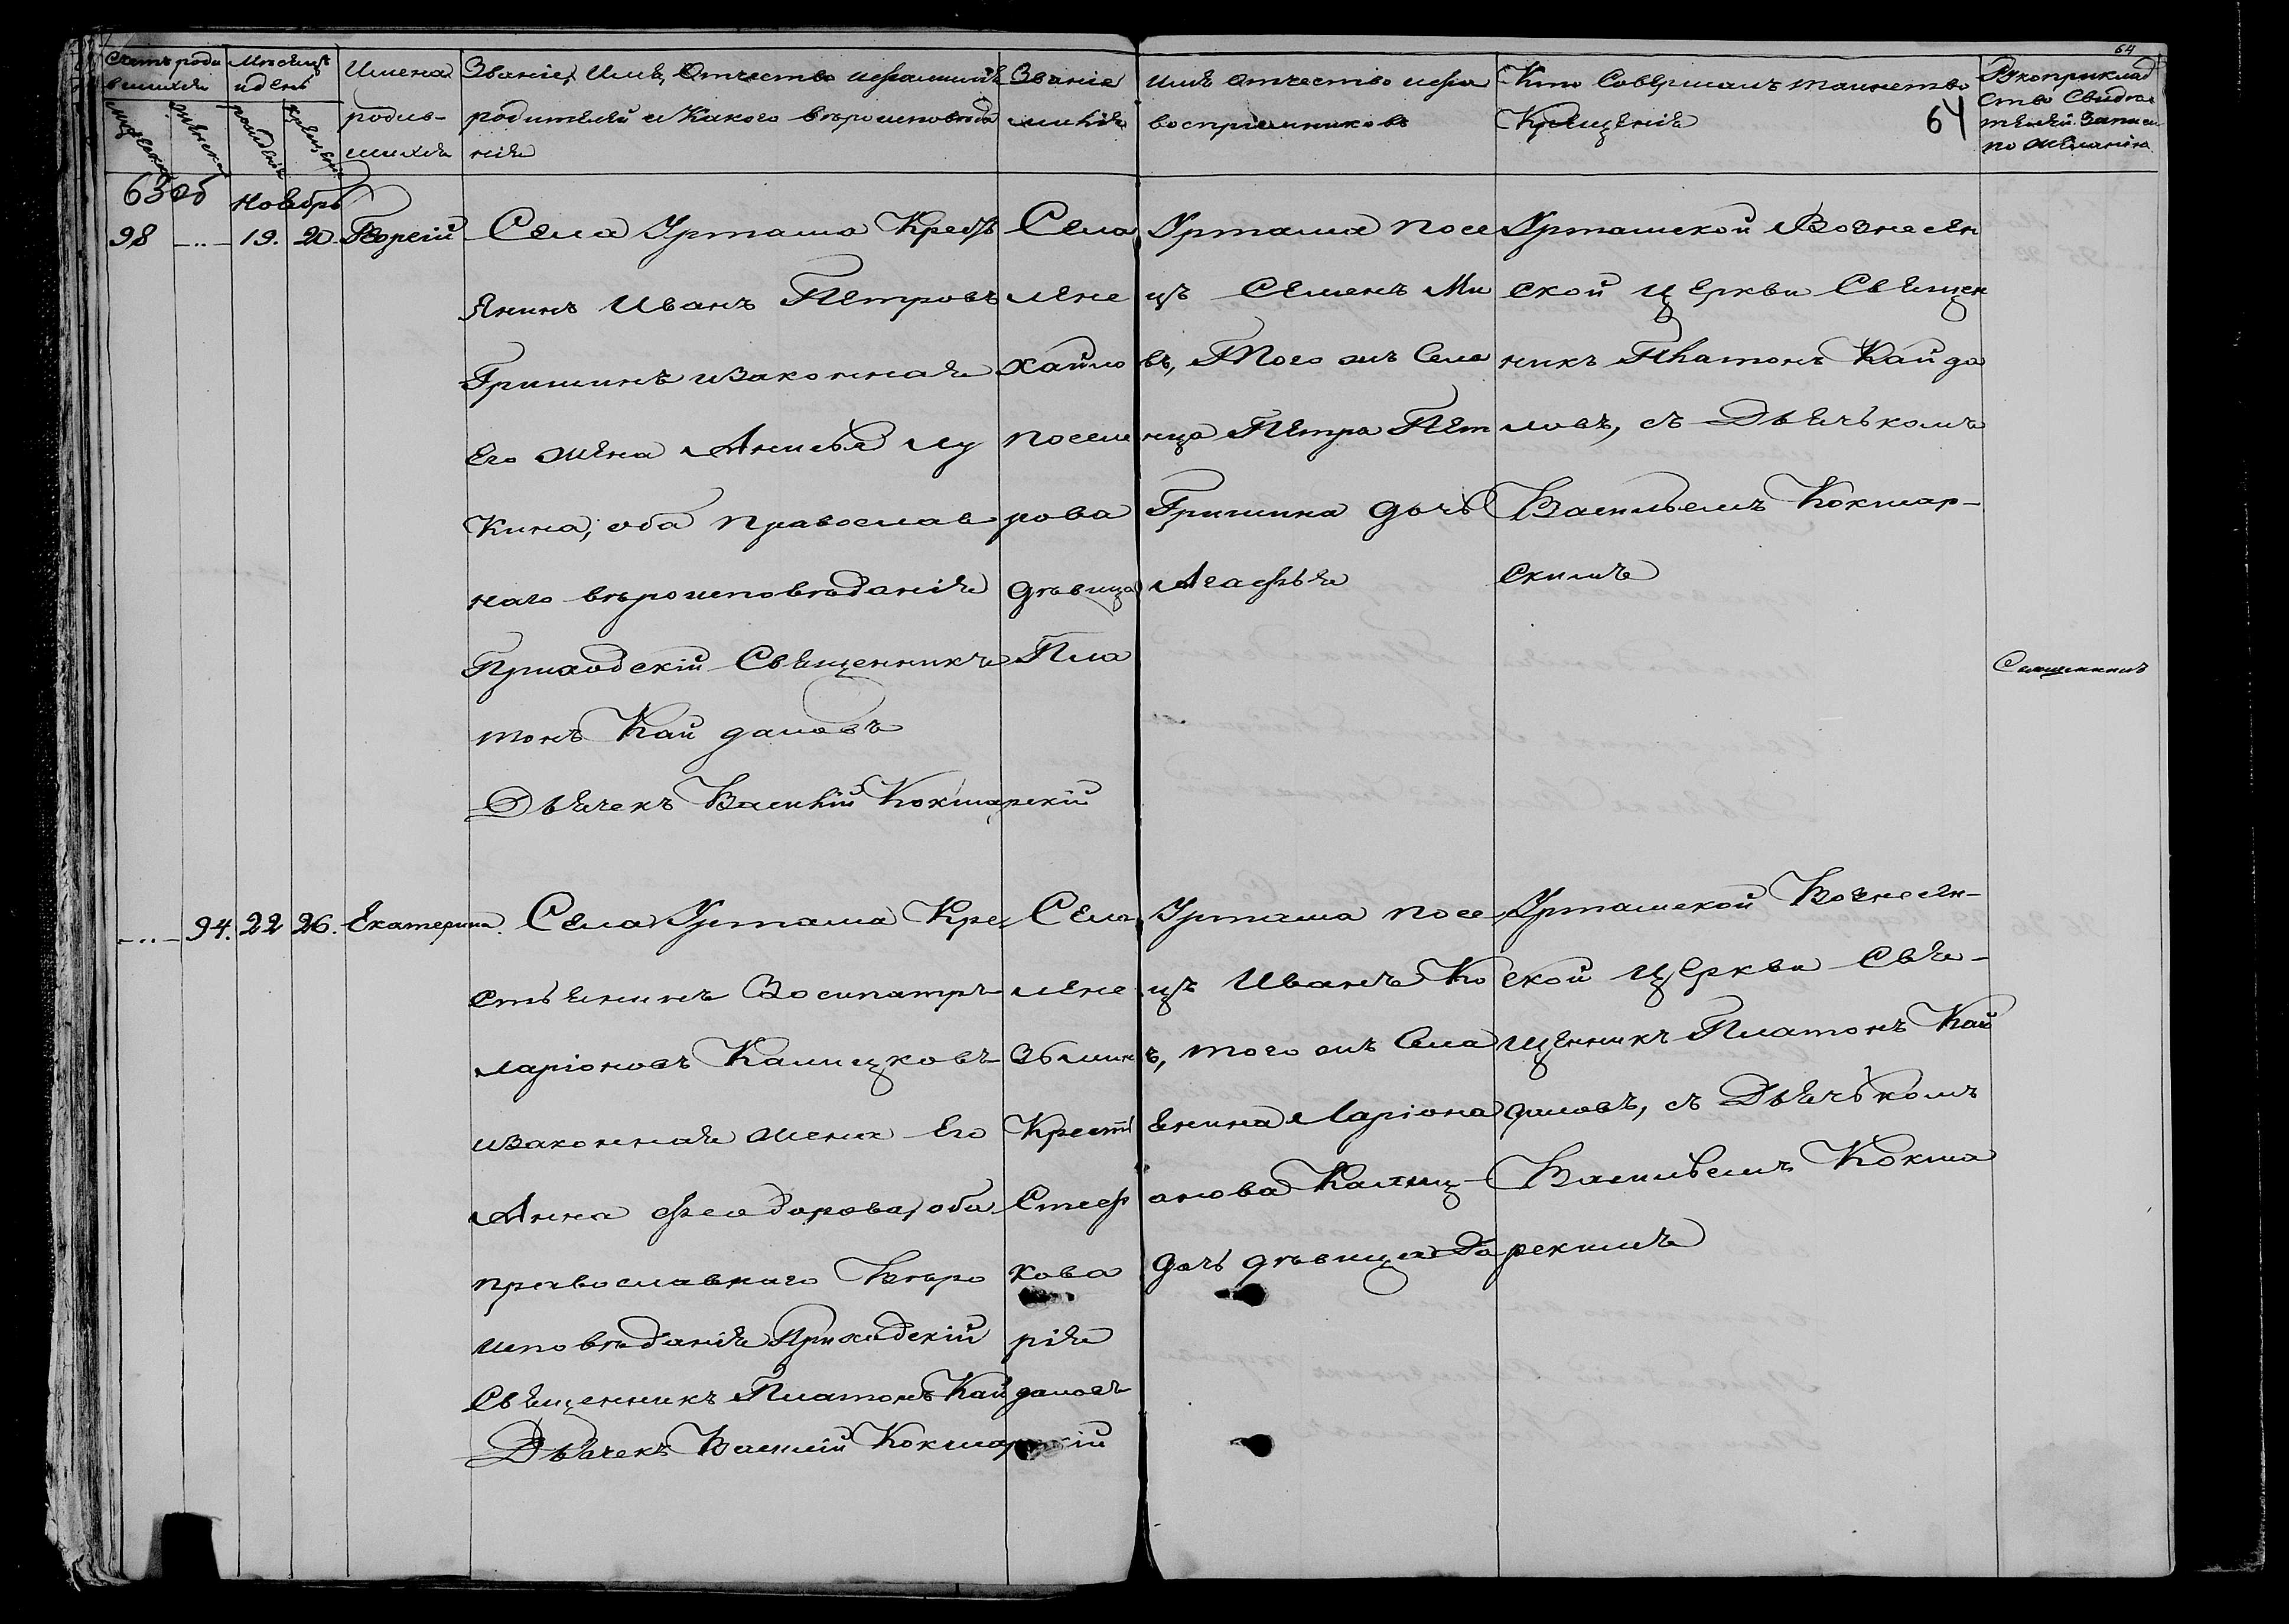 64
Счетъ роди
вшихся
Мѣсяцъ
и день
Имена
родив-
шихся
Званіе, Имя, Отчество и фамилія
родителей и Какого вѣроисповѣда
нія
Званіе имя отчество и фа
милія воспріемниковъ
Кто Совершалъ таинство
Крещенія
64
Рукоприклад
ство Свидѣ
телей записи
по желанію
мужеска
женска
рожденія
крещенія
63об
Ноябрь
98 -..- 19. 20. Георгій
Села Уртама Крестъ
янинъ Иванъ Петровъ
Гришинъ и законная
его жена Анисья Лу
кина, оба православ
наго вѣроисповѣданія
Приходскій Священникъ Пла
тонъ Кайдаловъ
Дьячекъ Василій Кокшарскій
Села Уртама посе
ленецъ Семенъ Ми
хайловъ, Того жъ Села
поселенца Петра Пет
рова Гришина дочь
дѣвица Агафья
Уртамской Вознесен
ской церкви Священ
никъ Платонъ Кайда
ловъ, съ Дьячькомъ
Васильемъ Кокшар-
скимъ
-..- 94. 22 26. Екатерина
Села Уртама Кре
стьянинъ Восипатръ
Ларіоновъ Камицковъ
и законная жена Его
Анна Феодорова, оба
православнаго Вѣро
исповѣданія Приходскій
Священникъ Платонъ Кайдаловъ
Дьячекъ Василій Кокшарскій
Села Уртама посе
ленецъ Иванъ Ко
ъ, того жъ Села
Крестьянина Ларіона
Стефанова
кова дочь дѣвица Да
рія
Уртамской Вознесен-
ской Церкви Свя-
щенникъ Платонъ Кай
даловъ, съ Дьячькомъ
Васильемъ Кокша
рскимъ